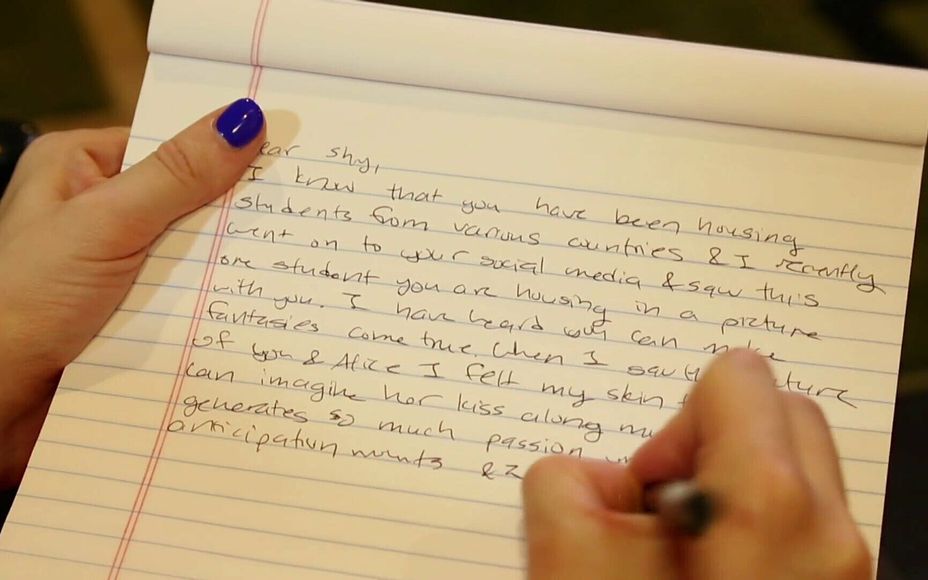 ear shy,
I know that you have been housing
students from various countries & I recently
went on to your social media & saw this
one student you are housing in a picture
with you. I have heard you can make
fantasies come true. When I saw the picture
of you & Alice I felt my skin
can imagine her kiss along my
generates so much passion
anticipation mounts & I